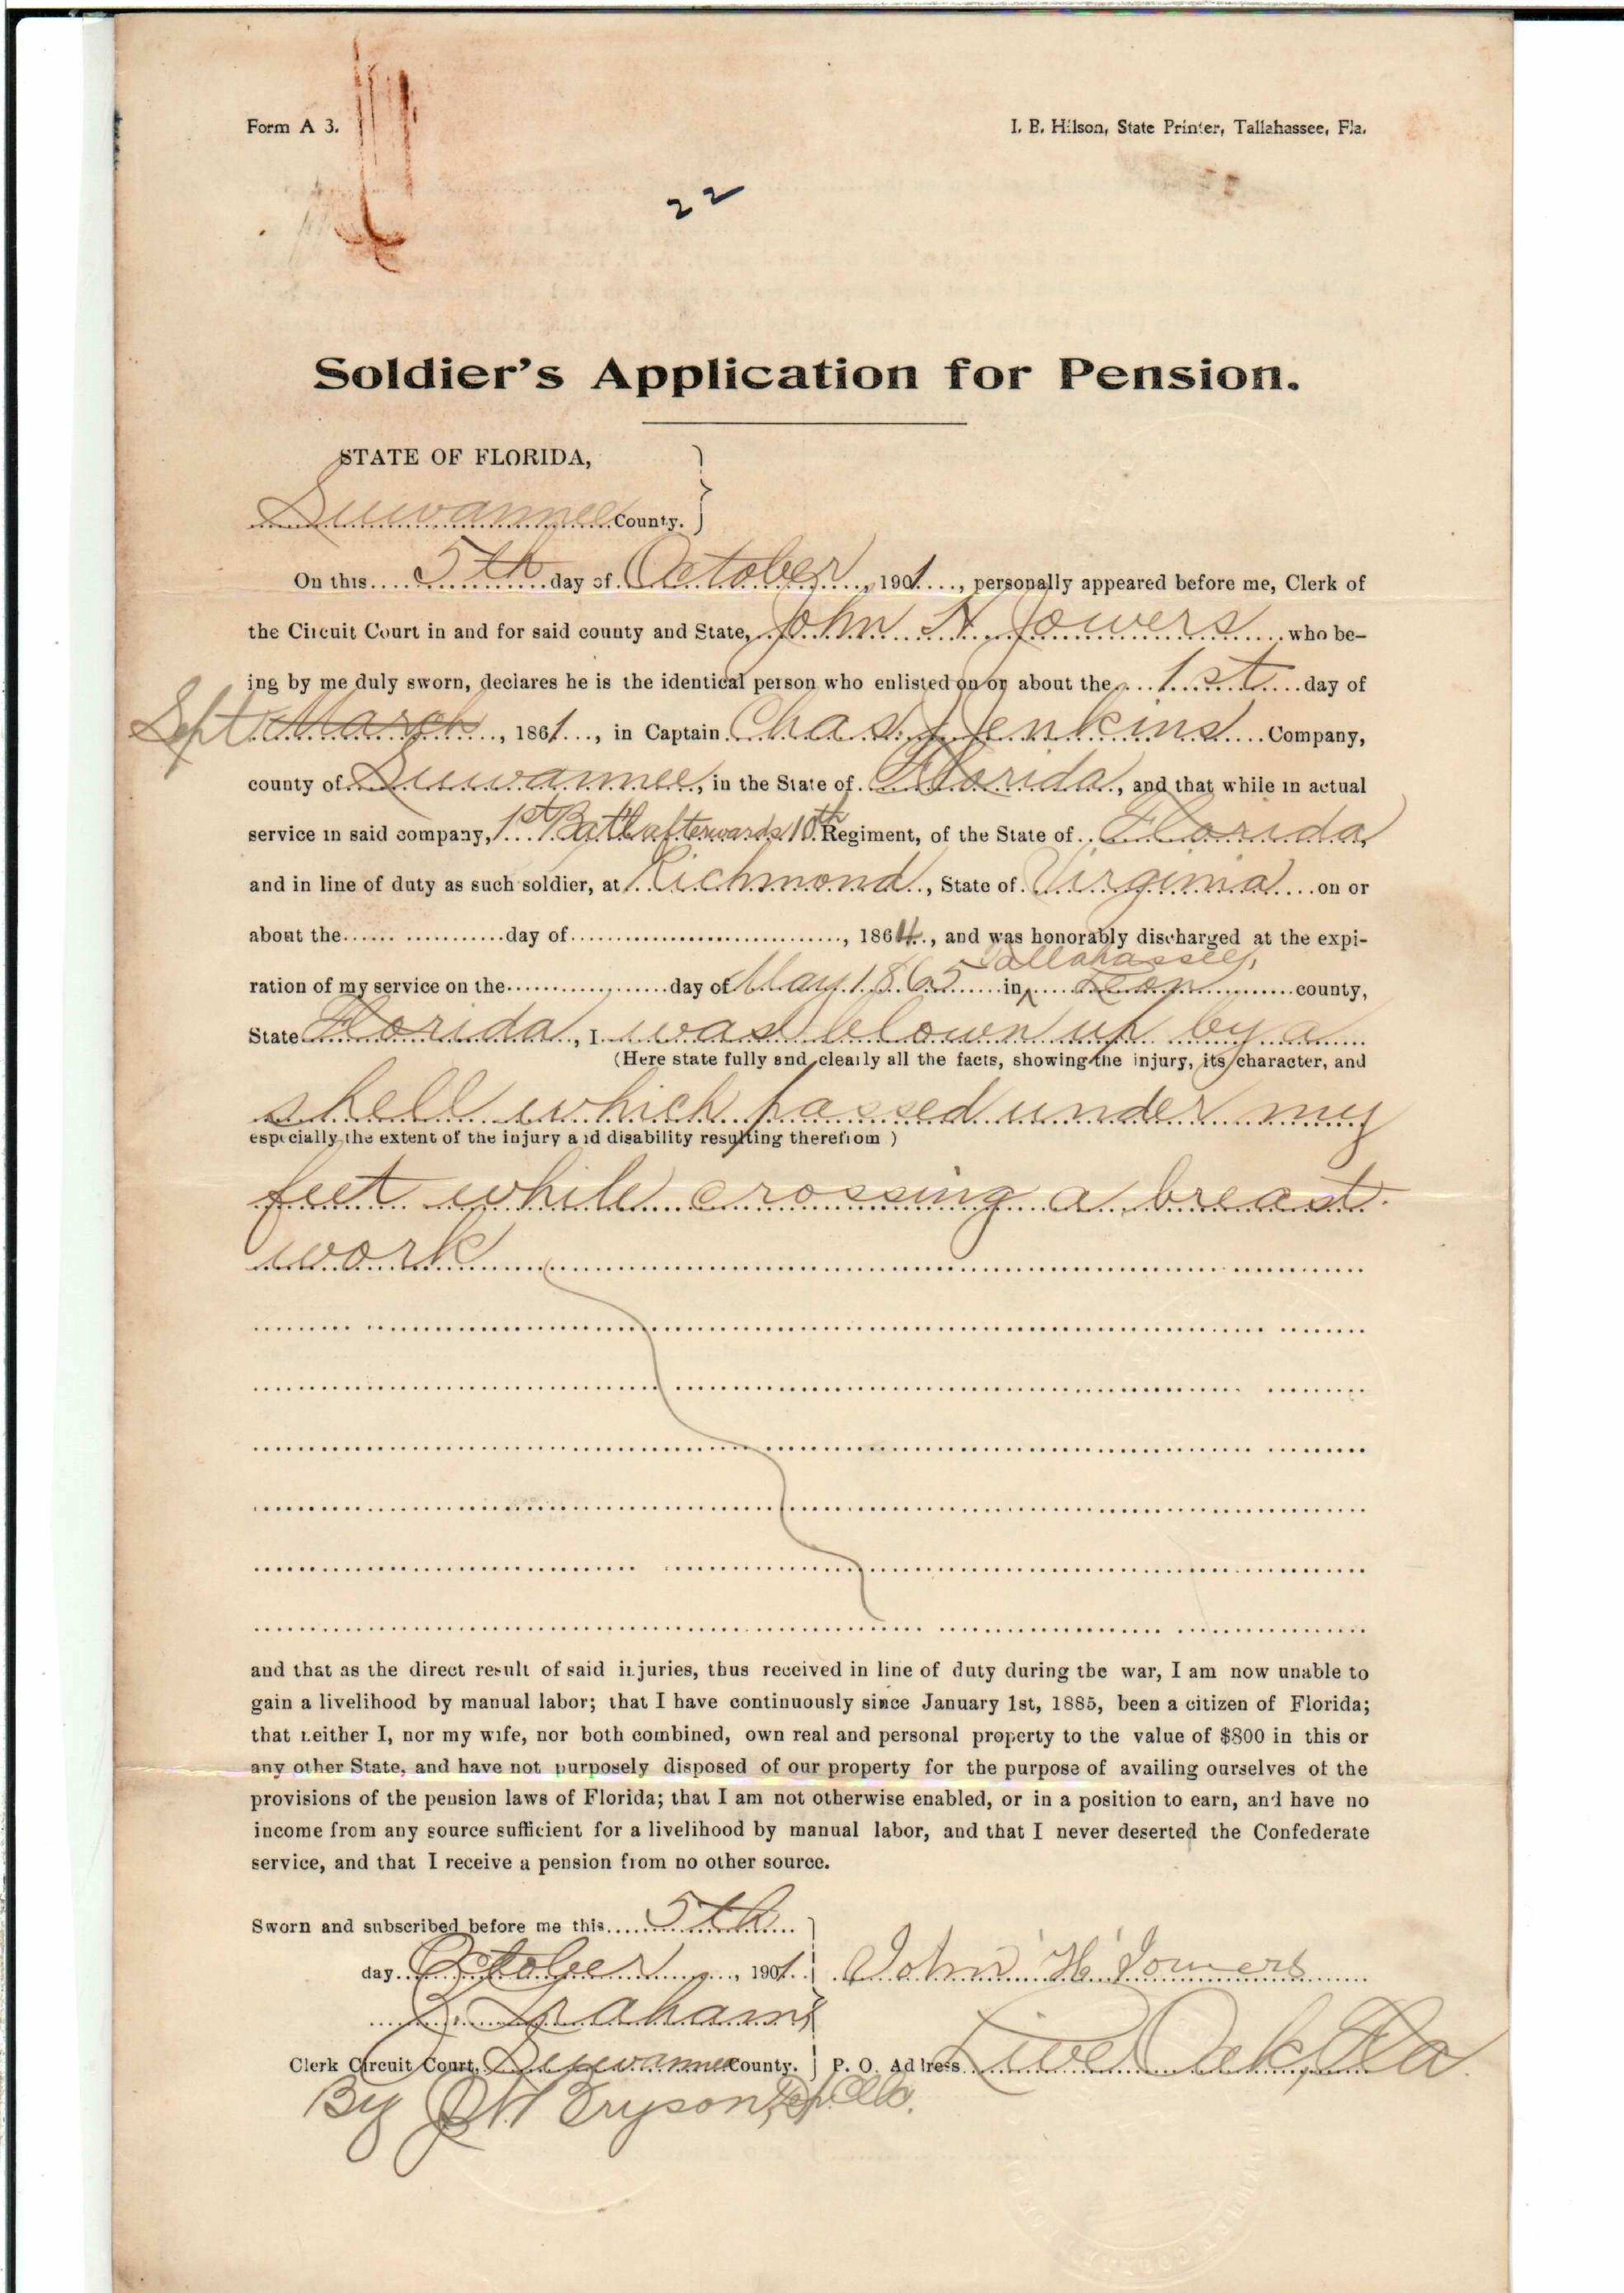 Form A 3.
I. B. Hilson, State Printer, Tallahassee, Fla.
22
Soldier's Application for Pension.
STATE OF FLORIDA,
Suwannee County.
On this 5th day of October, 1901, personally appeared before me, Clerk of
the Circuit Court in and for said county and State, John H Jowers who be-
ing by me duly sworn, declares he is the identical person who enlisted on or about the 1st day of
Sept March, 1861, in Captain Chas Jenkins Company,
county of Suwannee, in the State of Florida, and that while in actual
service in said company, 1st Batt afterwards 10th Regiment, of the State of Florida,
and in line of duty as such soldier, at Richmond, State of Virginia on or
about the day of , 1864, and was honorably discharged at the expi-
Tallahassee,
ration of my service on the day of May 1865 in Leon county,
State Florida, I was blown up by a
(Here state fully and clearly all the facts, showing the injury, its character, and
shell which passed under my
especially the extent of the injury and disability resulting therefrom )
feet while crossing a breast
work
and that as the direct result of said injuries, thus received in line of duty during the war, I am now unable to
gain a livelihood by manual labor; that I have continuously since January 1st, 1885, been a citizen of Florida;
that neither I, nor my wife, nor both combined, own real and personal property to the value of $800 in this or
any other State, and have not purposely disposed of our property for the purpose of availing ourselves of the
provisions of the pension laws of Florida; that I am not otherwise enabled, or in a position to earn, and have no
income from any source sufficient for a livelihood by manual labor, and that I never deserted the Confederate
service, and that I receive a pension from no other source.
Sworn and subscribed before me this 5th
day October, 1901. John H Jowers
Graham
Clerk Circuit Court, Suwannee County. P. O. Address Live Oak, Fla.
By Bryson, Dep. Clk.